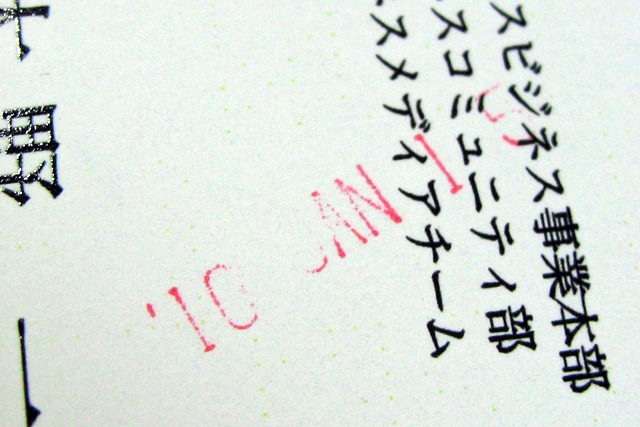 スビジネス事業本部
スコミュニティ部
スメディアチーム
'10 JAN 1